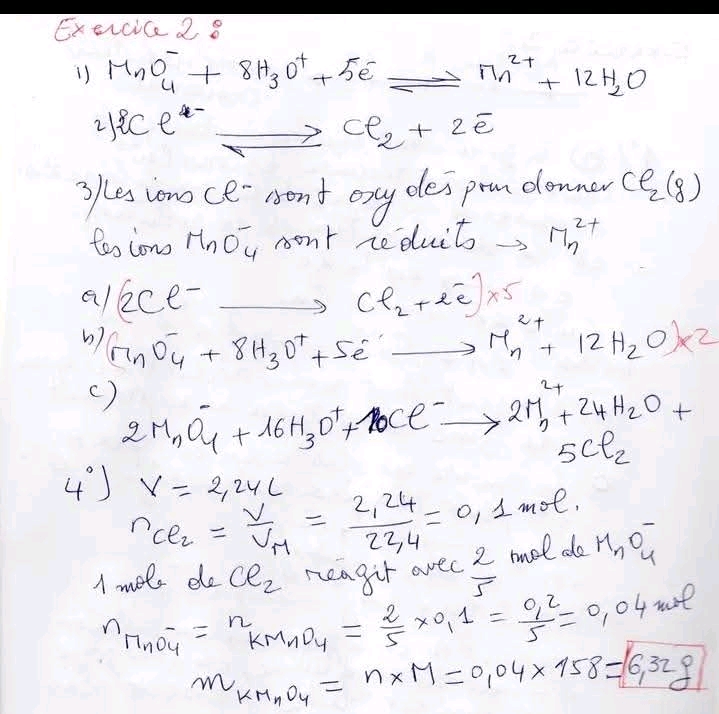 Exercice 2 :
1) MnO₄⁻ + 8H₃O⁺ + 5ē ⇌ Mn²⁺ + 12H₂O
2) 2Cl⁻ ⇌ Cl₂ + 2ē
3) Les ions Cl⁻ sont oxydés pour donner Cl₂(g)
les ions MnO₄⁻ sont réduits → Mn²⁺
a/ (2Cl⁻ → Cl₂ + 2ē) x5
b) (MnO₄⁻ + 8H₃O⁺ + 5ē → Mn²⁺ + 12H₂O) x2
c)
2MnO₄⁻ + 16H₃O⁺ + 10Cl⁻ → 2Mn²⁺ + 24H₂O +
5Cl₂
4°) V = 2,24L
n Cl₂ = V/V_M = 2,24/22,4 = 0,1 mol.
1 mole de Cl₂ réagit avec 2/5 mol de MnO₄⁻
n MnO₄⁻ = n KMnO₄ = 2/5 x 0,1 = 0,2/5 = 0,04 mol
m KMnO₄ = n x M = 0,04 x 158 = 6,32g